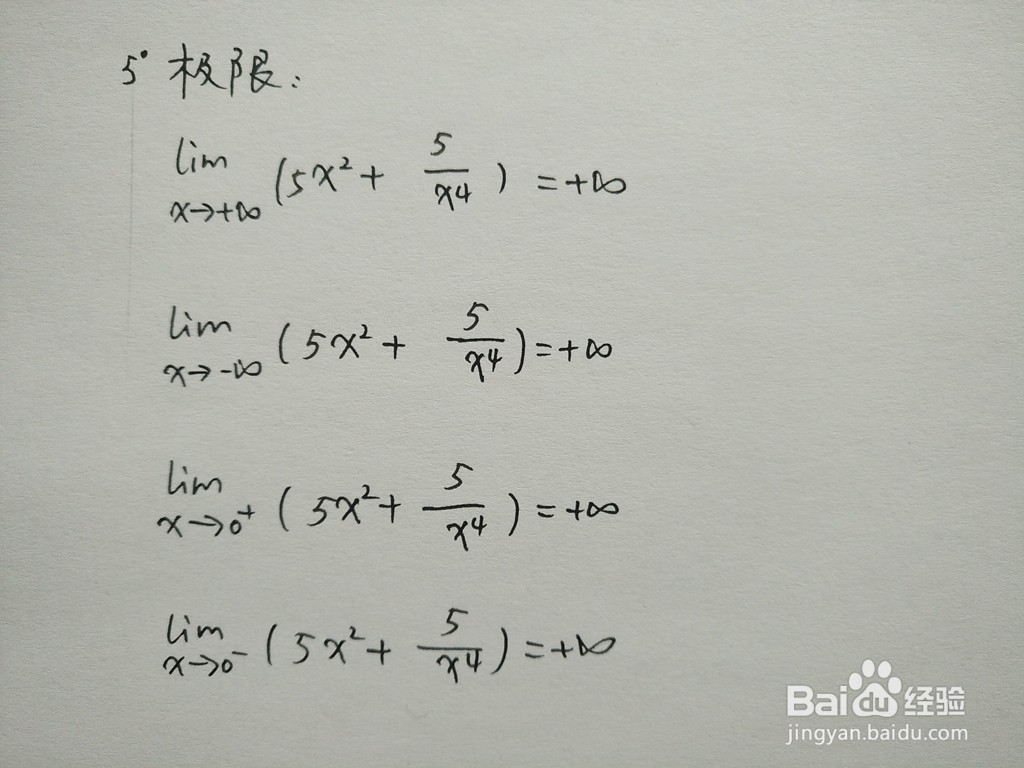 5° 极限:
lim x→+∞ (5x² + 5/x⁴) = +∞
lim x→-∞ (5x² + 5/x⁴) = +∞
lim x→0⁺ (5x² + 5/x⁴) = +∞
lim x→0⁻ (5x² + 5/x⁴) = +∞
Baidu经验
jingyan.baidu.com